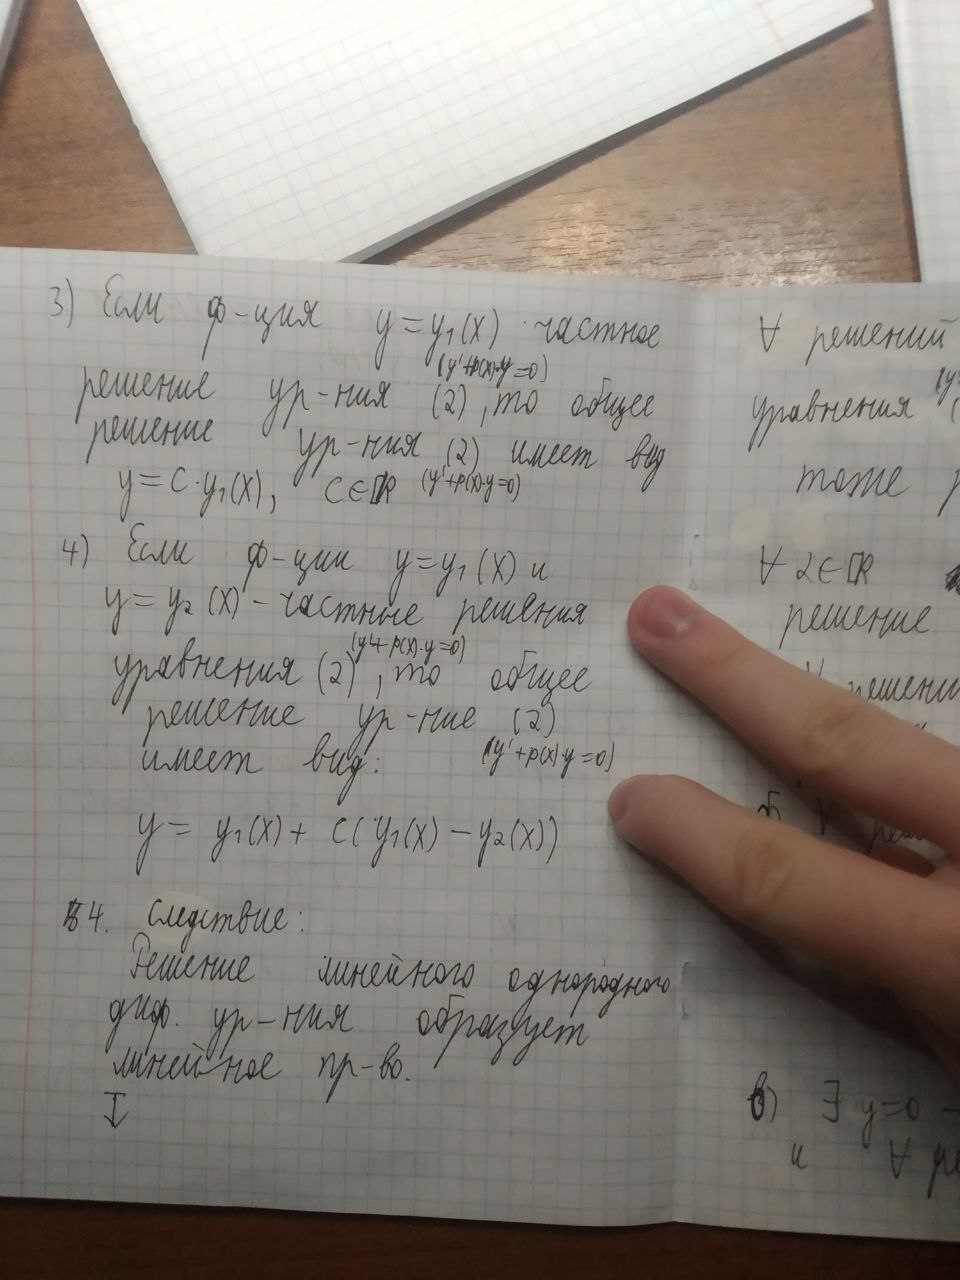 3) Если ф-ция y=y₁(x) частное
(y'+p(x)·y=0)
решение ур-ния (2), то общее
решение ур-ния (2) имеет вид
y=C·y₁(x), C∈ℝ (y'+p(x)·y=0)
4) Если ф-ции y=y₁(x) и
y=y₂(x) - частные решения
(y'+p(x)·y=0)
уравнения (2), то общее
решение ур-ние (2)
имеет вид: (y'+p(x)·y=0)
y= y₁(x)+ C(y₁(x) -y₂(x))
4. Следствие:
Решение линейного однородного
диф. ур-ния образует
линейное пр-во.
∀ решений
уравнения
тоже
∀ 2∈ℝ
решение
∀
∀
в) ∃ y=0 -
и ∀